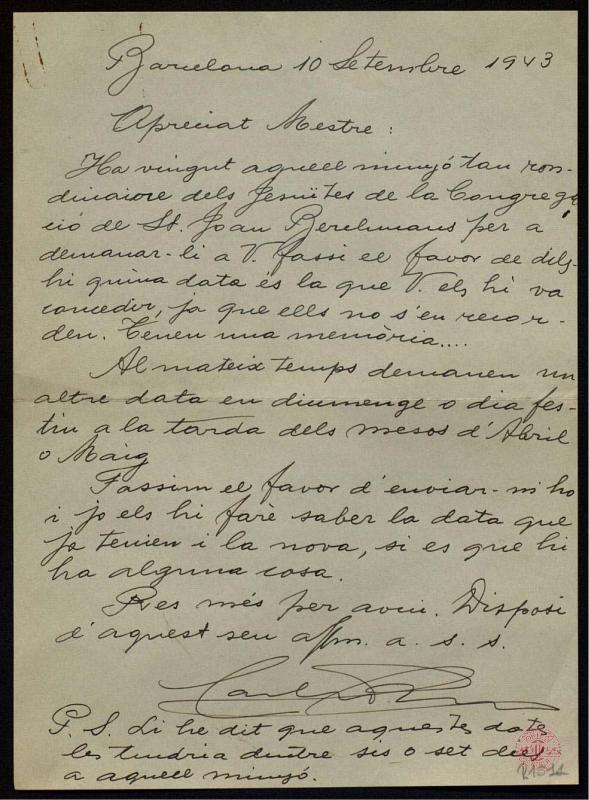 Barcelona 10 Setembre 1943
Apreciat Mestre:
Ha vingut aquell minyó tan ron-
dinaiore dels Jesuïtes de la Congrega
ció de St. Joan Berchmans per a
demanar-li a V. fassi el favor de dils-
hi quina data és la que V. els hi va
concedir, ja que ells no s'en recor-
den. Tenen una memòria....
Al mateix temps demanen un
altre data en diumenge o dia fes-
tiu a la tarda dels mesos d'Abril
o Maig
Fassim el favor d'enviar-m'ho
i jo els hi farè saber la data que
ja tenien i la nova, si es que hi
ha alguna cosa.
Res més per avui. Disposi
d'aquest seu afm. a. s. s.
P. S. Li he dit que aquestes dates
les tindria dintre sis o set dies
a aquell minyó.